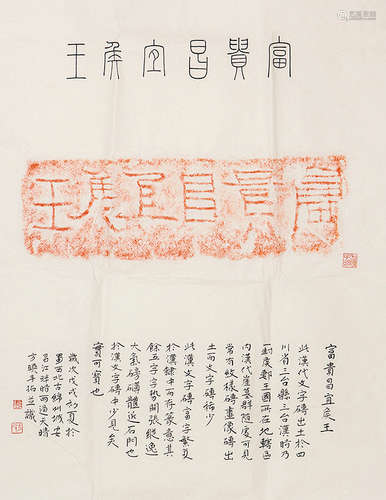 富貴昌宜侯王
富貴昌宜侯王
富貴昌宜侯王
此漢代文字磚出土於四
川省三台縣三台漢時乃
郪王國所在地轄區
内漢代崖墓群隨處可見
常有紋樣磚畫像磚出
土而文字磚稀少
此漢文字磚富字繁复
於漢隸中而存篆意其
餘五字字勢開張縱逸
大氣磅礴體近石門也
於漢文字磚中少見矣
實可寶也
歲次戊戌初夏於
蜀西北古綿州城安
昌江畔時雨過天晴
方曉手拓并識